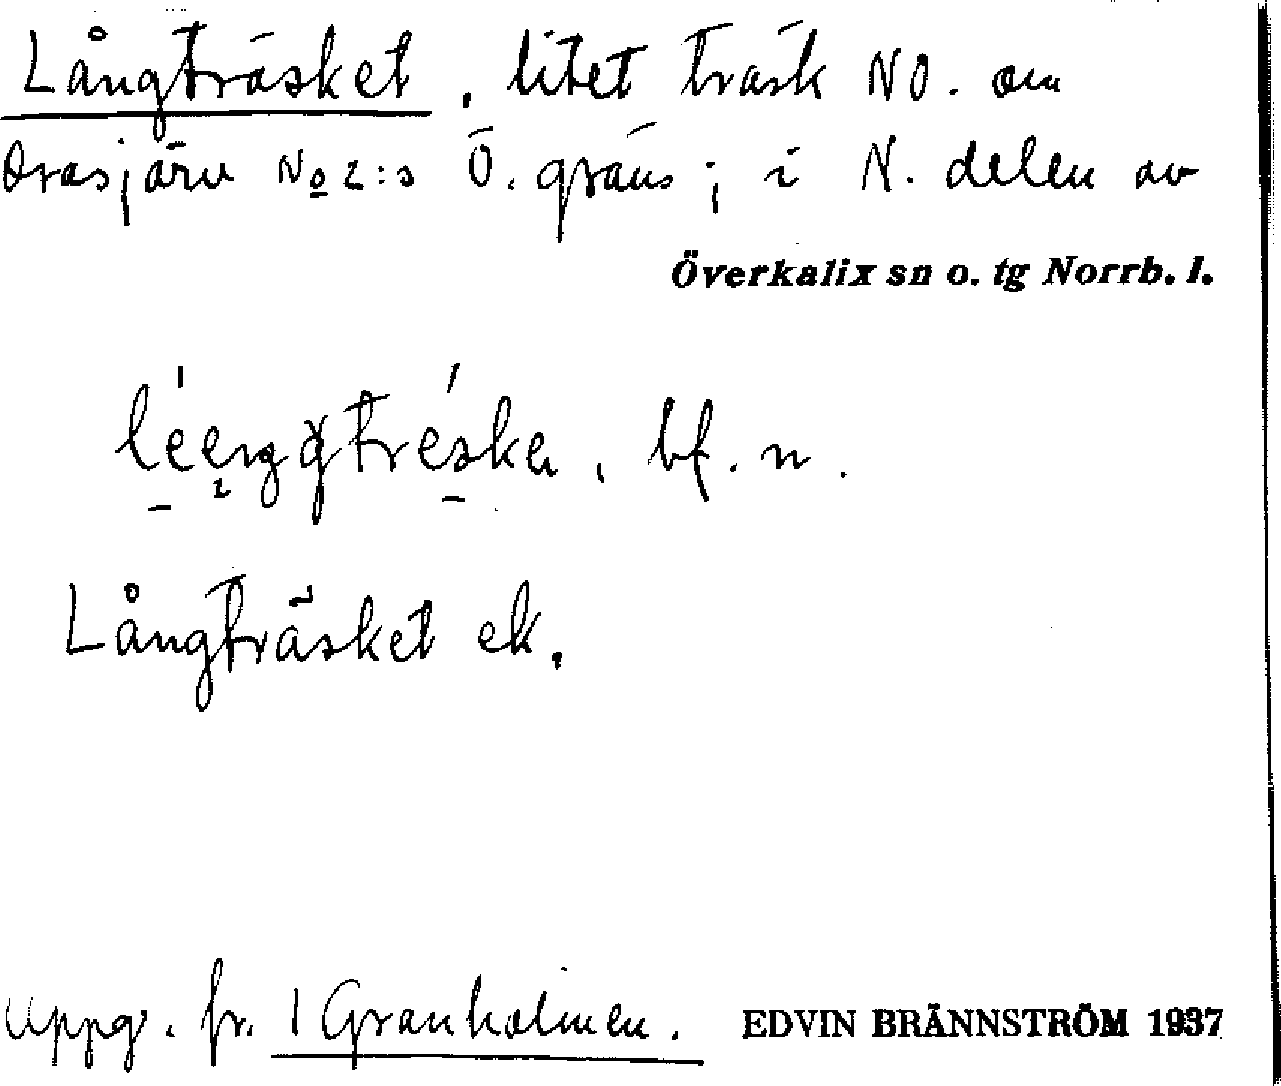 Långträsket, litet träsk NO. om
Orasjärv No 2:s Ö. gräns; i N. delen av
Överkalix sn o. tg Norrb. l.
bf. n.
Långträsket ek.
uppg. fr. 1 Granholmen. EDVIN BRÄNNSTRÖM 1937